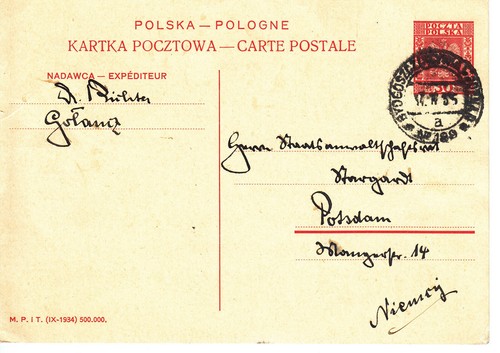 POLSKA — POLOGNE
KARTKA POCZTOWA — CARTE POSTALE
POCZTA
POLSKA
30
NADAWCA — EXPÉDITEUR
A. Richter
Gołańcz
BYDGOSZCZ
Nr 189
a
Herrn Staatsanwaltschaftsrat
Stargardt
Potsdam
Mangerstr. 14
Niemcy
M. P. i T. (IX-1934) 500.000.